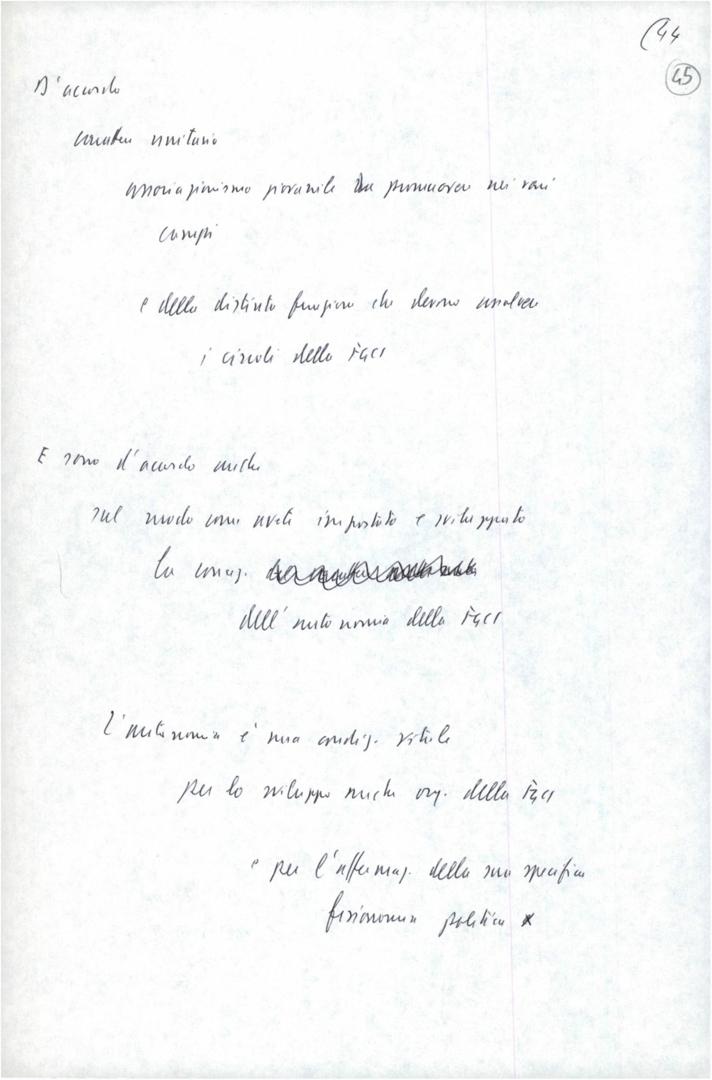 (44
45
D'accordo
carattere unitario
associazionismo giovanile da promuovere nei vari
campi
e della distinta funzione che devono assolvere
i circoli della FGCI
E sono d'accordo anche
sul modo come avete impostato e sviluppato
la concez.
dell'autonomia della FGCI
L'autonomia è una condiz. vitale
per lo sviluppo anche org. della FGCI
e per l'affermaz. della sua specifica
fisionomia politica x